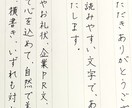 ただきありがとうご
読みやすい文字で、あ
たします。
やお礼状、企業PR文、
て心を込めて、自然で
横書き、いずれも対